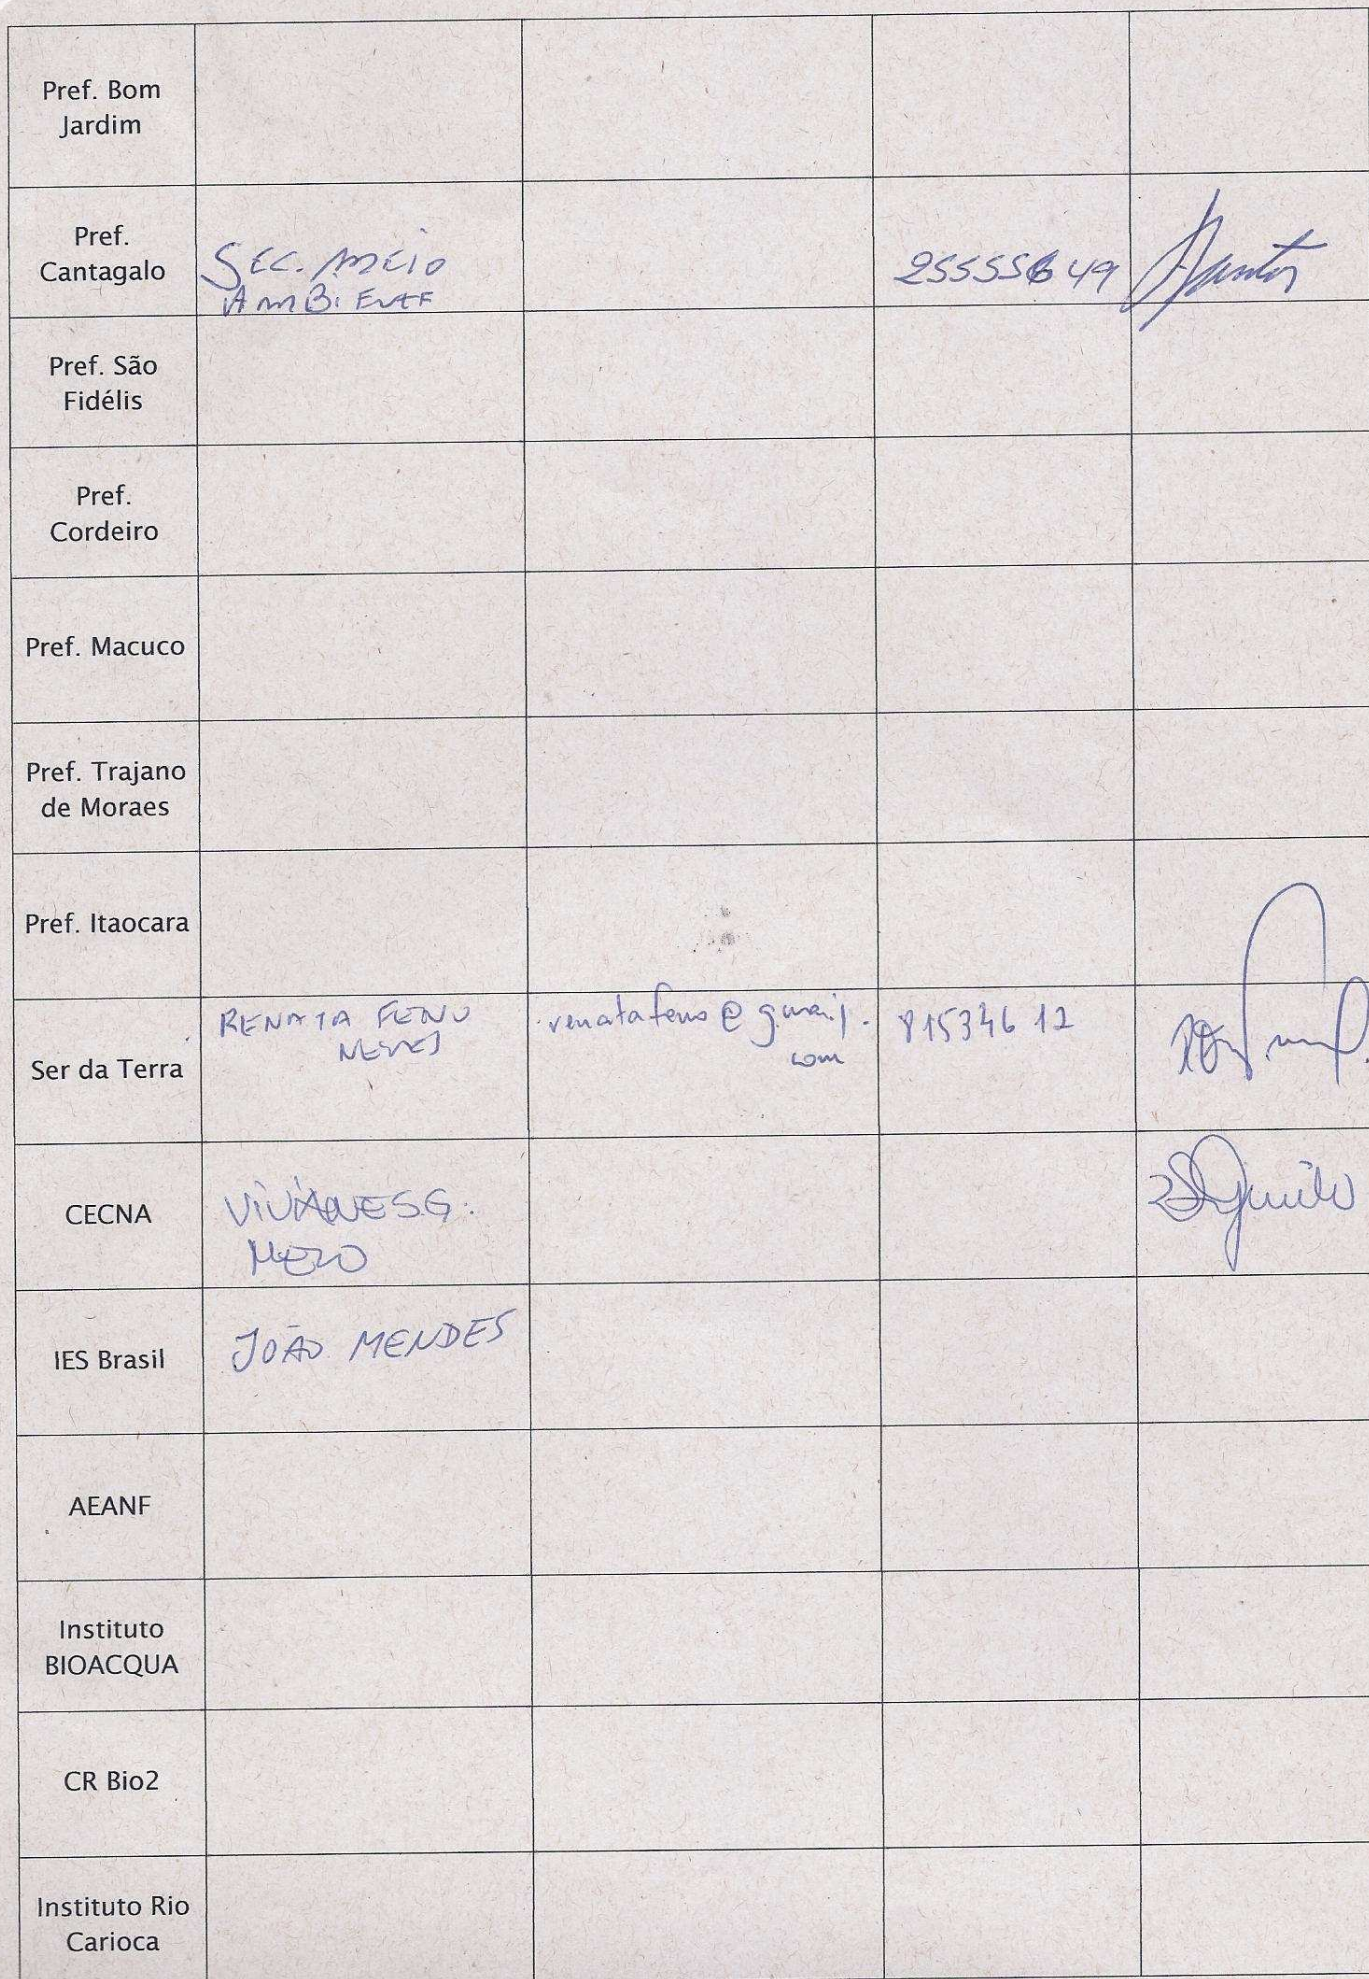 Pref. Bom
Jardim
Pref.
Cantagalo
SEC. MEIO
AMBIENTE
25555649
Pref. São
Fidélis
Pref.
Cordeiro
Pref. Macuco
Pref. Trajano
de Moraes
Pref. Itaocara
Ser da Terra
RENATA
NEVES
815346 12
CECNA
VIVIANE S.G.
IES Brasil
JOÃO MENDES
AEANF
Instituto
BIOACQUA
CR Bio2
Instituto Rio
Carioca